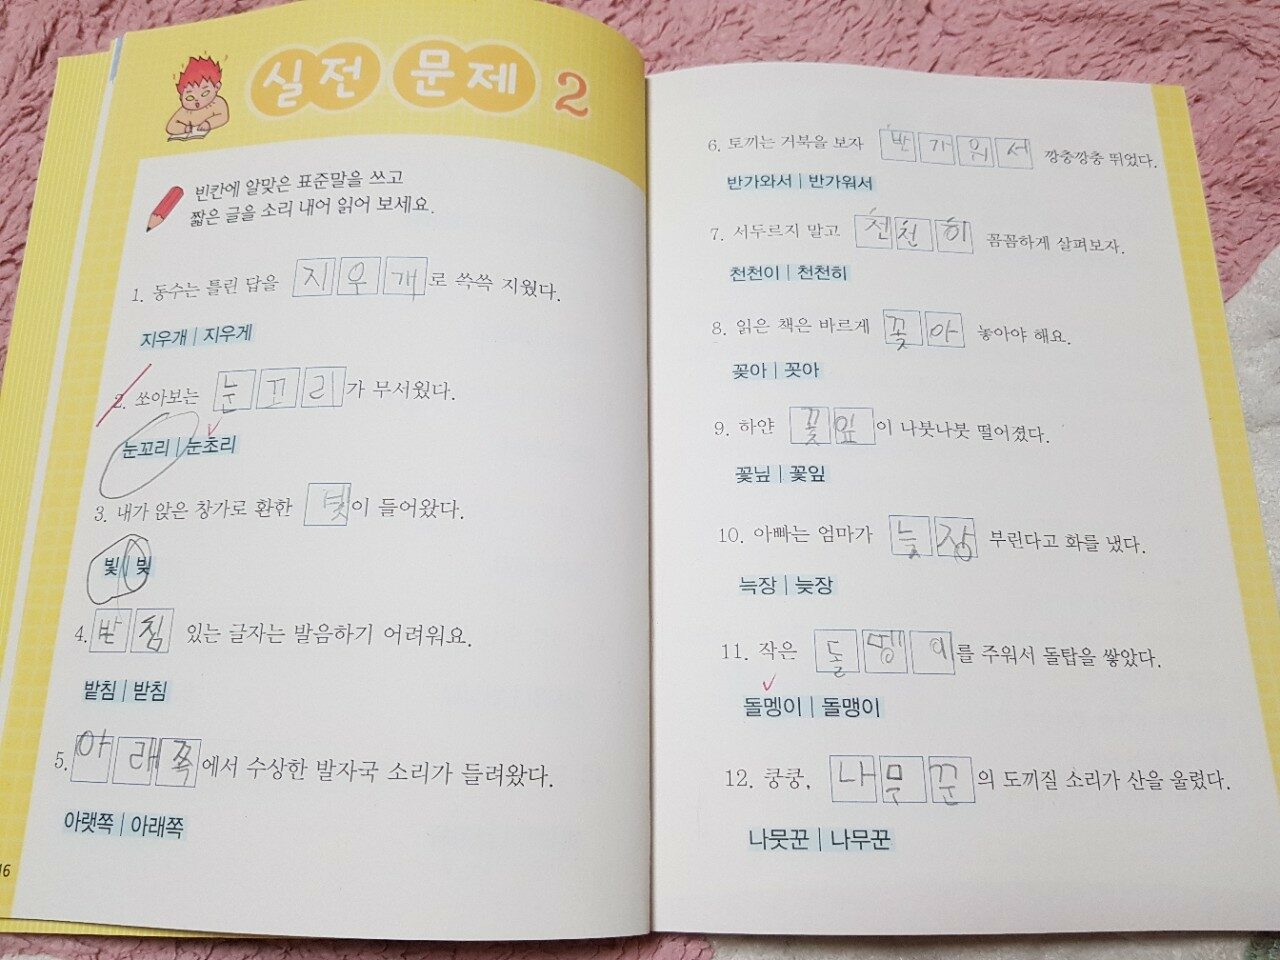 실전 문제 2
빈칸에 알맞은 표준말을 쓰고
짧은 글을 소리 내어 읽어 보세요.
1. 동수는 틀린 답을 지우개로 쓱쓱 지웠다.
지우개 | 지우게
2. 쏘아보는 눈꼬리가 무서웠다.
눈꼬리 | 눈초리
3. 내가 앉은 창가로 환한 빛이 들어왔다.
빛 | 빚
4. 받침 있는 글자는 발음하기 어려워요.
밭침 | 받침
5. 아래쪽에서 수상한 발자국 소리가 들려왔다.
아랫쪽 | 아래쪽
16
6. 토끼는 거북을 보자 반가워서 깡충깡충 뛰었다.
반가와서 | 반가워서
7. 서두르지 말고 천천히 꼼꼼하게 살펴보자.
천천이 | 천천히
8. 읽은 책은 바르게 꽂아 놓아야 해요.
꽂아 | 꼿아
9. 하얀 꽃잎이 나붓나붓 떨어졌다.
꽃닢 | 꽃잎
10. 아빠는 엄마가 늦장 부린다고 화를 냈다.
늑장 | 늦장
11. 작은 돌멩이를 주워서 돌탑을 쌓았다.
돌멩이 | 돌맹이
12. 쿵쿵, 나무꾼의 도끼질 소리가 산을 울렸다.
나뭇꾼 | 나무꾼